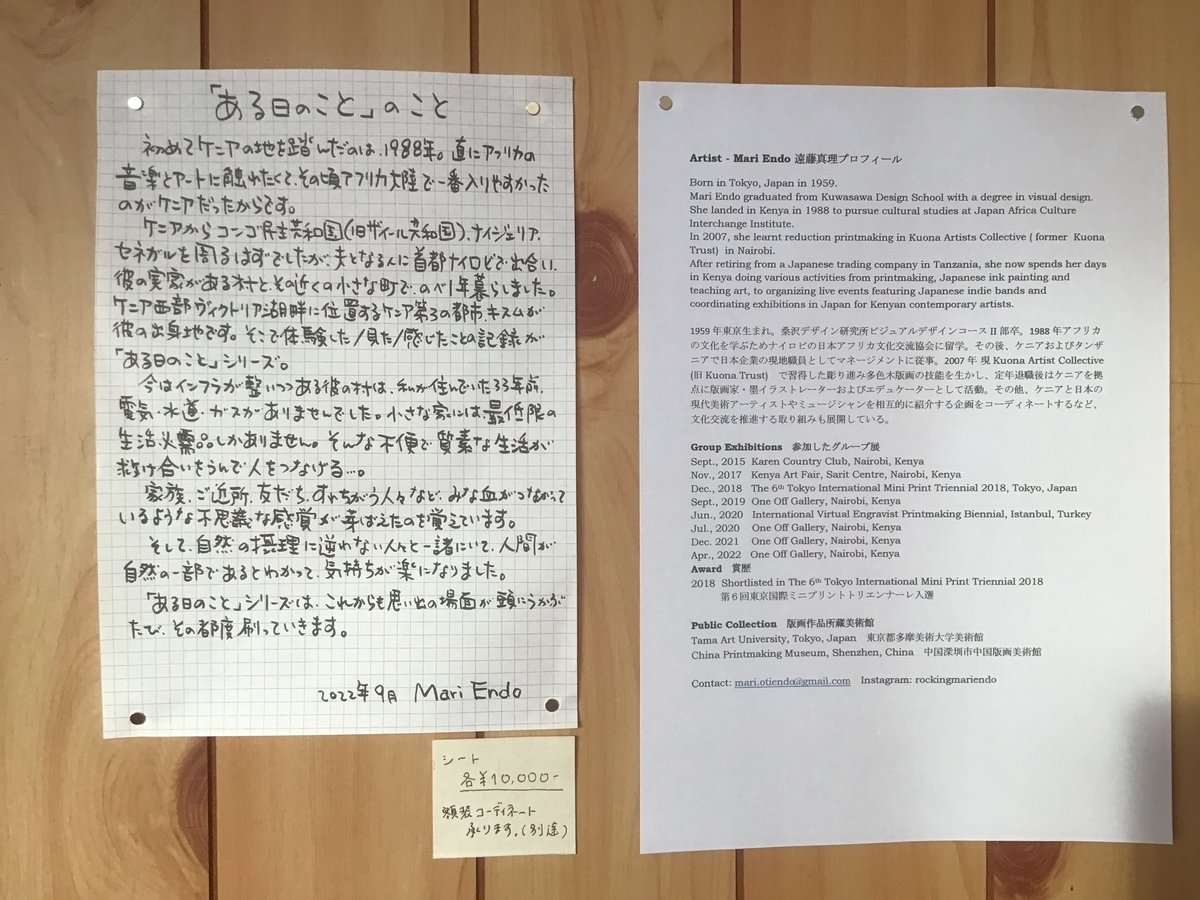 「ある日のこと」のこと
初めてケニアの地を踏んだのは、1988年。直にアフリカの
音楽とアートに触れたくて、その頃アフリカ大陸で一番入りやすかった
のがケニアだったからです。
ケニアからコンゴ民主共和国(旧ザイール共和国)、ナイジェリア、
セネガルを周るはずでしたが、夫となる人に首都ナイロビで出合い、
彼の実家がある村と、その近くの小さな町で、のべ1年暮らしました。
ケニア西部ヴィクトリア湖畔に位置するケニア第3の都市、キスムが
彼の出身地です。そこで体験した/見た/感じたことの記録が
「ある日のこと」シリーズ。
今はインフラが整いつつある彼の村は、私が住んでいた33年前、
電気・水道・ガスがありませんでした。小さな家には、最低限の
生活必需品しかありません。そんな不便で質素な生活が
救け合いをうんで人をつなげる…。
家族、ご近所、友だち、すれちがう人々など、みな血がつながって
いるような不思議な感覚が芽ばえたのを覚えています。
そして、自然の摂理に逆れない人々と一緒にいて、人間が
自然の一部であるとわかって、気持ちが楽になりました。
「ある日のこと」シリーズは、これからも思い出の場面が頭にうかぶ
たび、その都度刷っていきます。
2022年9月 Mari Endo
シート
各¥10,000-
額装コーディネート
承ります。(別途)
Artist - Mari Endo 遠藤真理プロフィール
Born in Tokyo, Japan in 1959.
Mari Endo graduated from Kuwasawa Design School with a degree in visual design.
She landed in Kenya in 1988 to pursue cultural studies at Japan Africa Culture
Interchange Institute.
In 2007, she learnt reduction printmaking in Kuona Artists Collective ( former Kuona
Trust) in Nairobi.
After retiring from a Japanese trading company in Tanzania, she now spends her days
in Kenya doing various activities from printmaking, Japanese ink painting and
teaching art, to organizing live events featuring Japanese indie bands and
coordinating exhibitions in Japan for Kenyan contemporary artists.
1959 年東京生まれ。桑沢デザイン研究所ビジュアルデザインコース II 部卒。1988 年アフリカ
の文化を学ぶためナイロビの日本アフリカ文化交流協会に留学。その後、ケニアおよびタンザ
ニアで日本企業の現地職員としてマネージメントに従事。2007 年 現 Kuona Artist Collective
(旧 Kuona Trust) で習得した彫り進み多色木版画の技能を生かし、定年退職後はケニアを拠
点に版画家・墨イラストレーターおよびエデュケーターとして活動。その他、ケニアと日本の
現代美術アーティストやミュージシャンを相互的に紹介する企画をコーディネートするなど、
文化交流を推進する取り組みも展開している。
Group Exhibitions 参加したグループ展
Sept., 2015 Karen Country Club, Nairobi, Kenya
Nov., 2017 Kenya Art Fair, Sarit Centre, Nairobi, Kenya
Dec., 2018 The 6th Tokyo International Mini Print Triennial 2018, Tokyo, Japan
Sept., 2019 One Off Gallery, Nairobi, Kenya
Jun., 2020 International Virtual Engravist Printmaking Biennial, Istanbul, Turkey
Jul., 2020 One Off Gallery, Nairobi, Kenya
Dec. 2021 One Off Gallery, Nairobi, Kenya
Apr., 2022 One Off Gallery, Nairobi, Kenya
Award 賞歴
2018 Shortlisted in The 6th Tokyo International Mini Print Triennial 2018
第 6 回東京国際ミニプリントトリエンナーレ入選
Public Collection 版画作品所蔵美術館
Tama Art University, Tokyo, Japan 東京都多摩美術大学美術館
China Printmaking Museum, Shenzhen, China 中国深圳市中国版画美術館
Contact: mari.otiendo@gmail.com Instagram: rockingmariendo